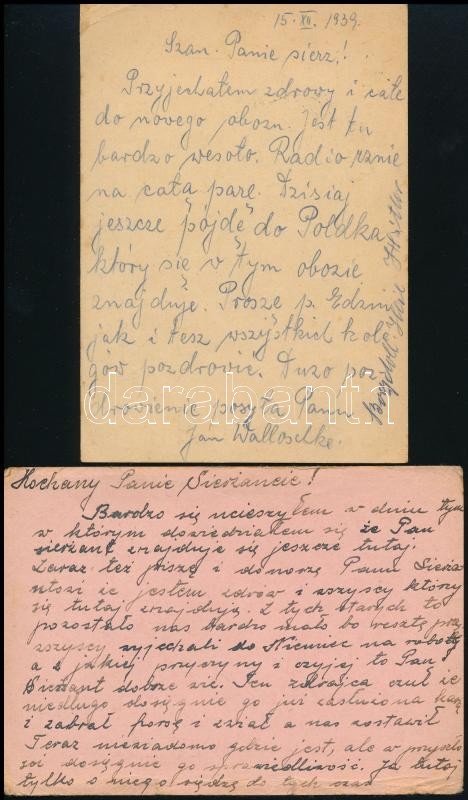 15. XII. 1939.
Szan. Panie sierż!
Przyjechałem zdrowy i całe
do nowego obozu. Jest tu
bardzo wesoło. Radio rznie
na całą parę. Dzisiaj
jeszcze pójdę do Poldka
który się w tym obozie
znajduje. Prosze p.
jak i tesz wszystkich kole
gów pozdrowic. Dużo poz
drowienie posyła Panu
Jan Walloschke.
darabanth.com
Kochany Panie Sierżancie!
Bardzo się ucieszyłem w dniu tym
w którym dowiedziałem się że Pan
sierżant znajduje się jeszcze tutaj.
Zaraz też piszę i donoszę Panu Sierża
ntosi że jestem zdrów i wszyscy którzy
się tutaj znajdują. Z tych starych to
pozostało nas bardzo mało bo reszta przy
wszyscy wyjechali do Niemiec na roboty
a z jakiej przyczyny i czyjej to Pan
Sierżant dobrze wie. Ten zdrajca czuł że
niedługo dosięgnie go już zasłużona kara
i zabrał forsę i wział a nas zostawił
Teraz niewiadomo gdzie jest, ale w przyszło
ści dosięgnie go sprawiedliwość. Ja tutaj
tylko o niego siędzę do tych czas